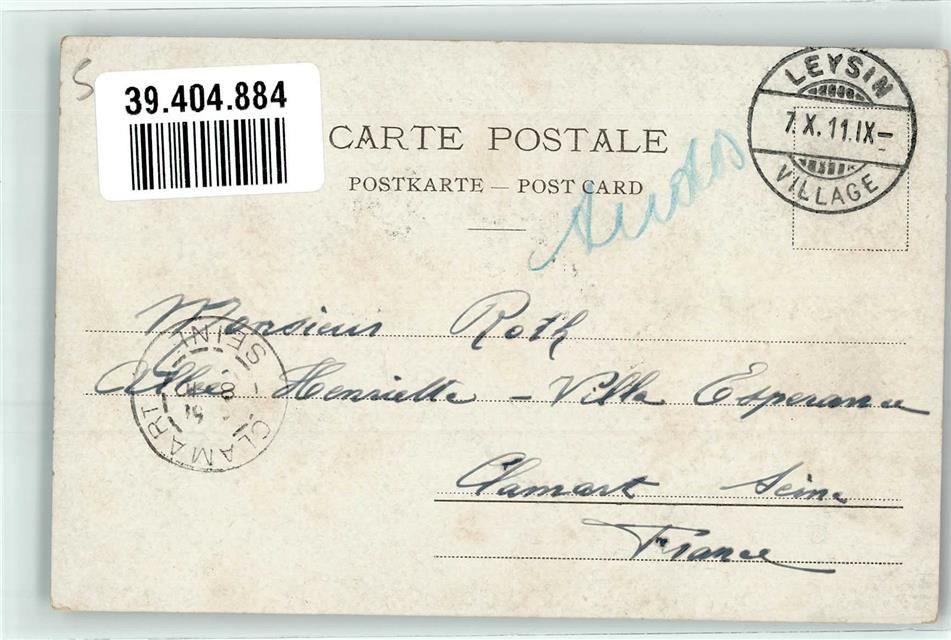 5
39.404.884
CARTE POSTALE
POSTKARTE — POST CARD
LEYSIN
7.X.11.IX-
VILLAGE
Monsieur Roth
Allée Henriette - Villa Esperance
Clamart Seine
France
CLAMART - SEINE